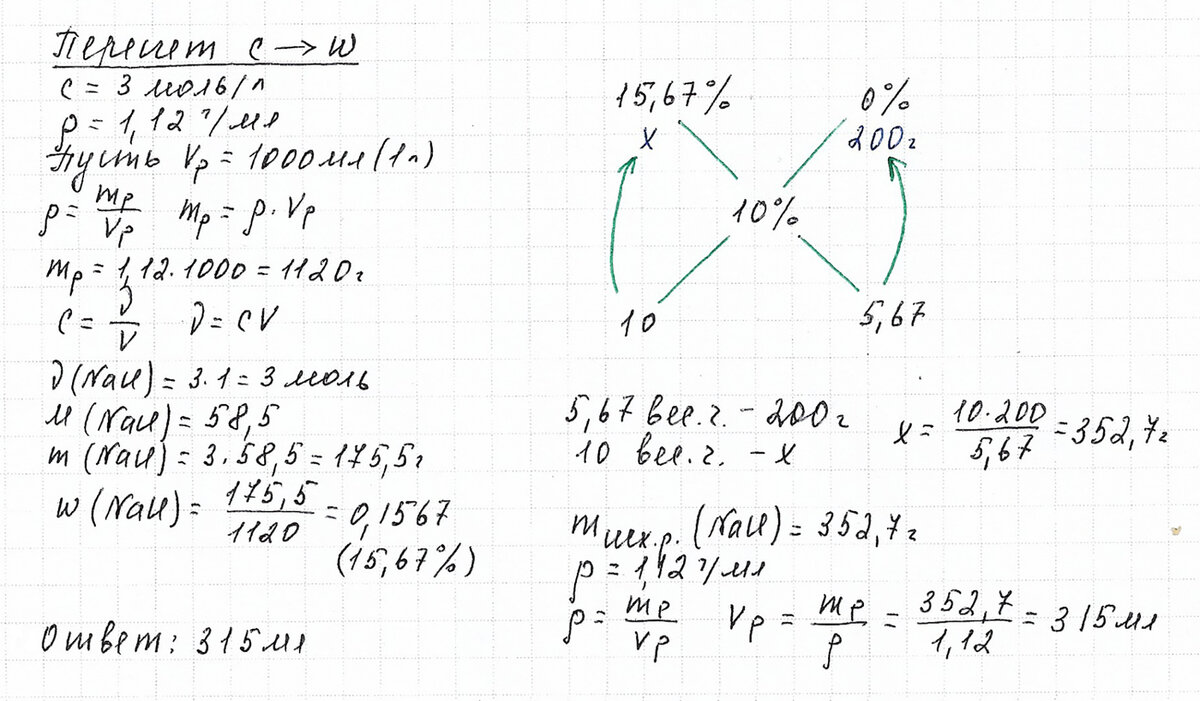 Пересчет c → w
c = 3 моль/л
ρ = 1,12 г/мл
Пусть Vр = 1000 мл (1л)
ρ = mр/Vр mр = ρ · Vр
mр = 1,12 · 1000 = 1120 г
c = ν/V ν = cV
ν(NaCl) = 3 · 1 = 3 моль
M(NaCl) = 58,5
m(NaCl) = 3 · 58,5 = 175,5 г
w(NaCl) = 175,5/1120 = 0,1567
(15,67%)
Ответ: 315 мл
15,67% 0%
x 200 г
10%
10 5,67
5,67 вес.ч. – 200 г
10 вес.ч. – x
x = 10·200/5,67 = 352,7 г
mисх.р. (NaCl) = 352,7 г
ρ = 1,12 г/мл
ρ = mр/Vр Vр = mр/ρ = 352,7/1,12 = 315 мл